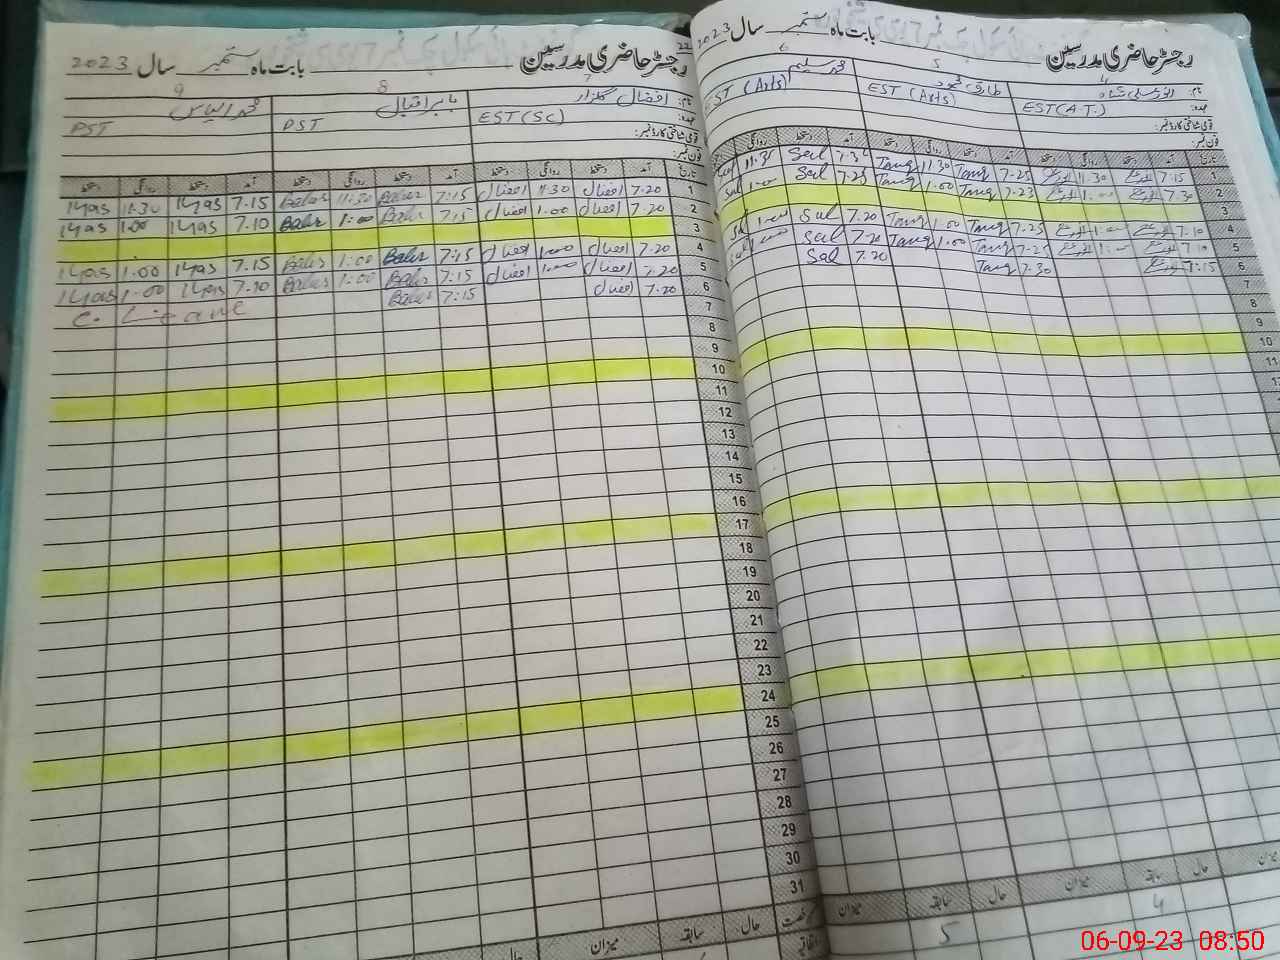 رجسٹر حاضری مدرسین بابت ماہ ستمبر سال 2023
4 5 6
نام:
عہدہ: EST (A.T.) EST (Arts) EST (Arts)
قومی شناختی کارڈ نمبر:
فون نمبر:
تاریخ آمد دستخط روانگی دستخط آمد دستخط روانگی دستخط آمد دستخط روانگی
1 7.15 11.30 7.25 Tariq 11.30 Tariq Sal 11.30
2 7.30 1.00 7.23 Tariq 1.00 Tariq 7.25 Sal 1.00 Sal
3
4 7.10 1.00 7.25 Tariq 1.00 Tariq 7.20 Sal 1.00 Sal
5 7.10 1.00 7.25 Tariq 1.00 Tariq 7.20 Sal 1.00 Sal
6 7.15 7.30 Tariq 7.20 Sal
7
8
9
10
11
حال سابقہ میزان حال سابقہ میزان
4 5
22
رجسٹر حاضری مدرسین بابت ماہ ستمبر سال 2023
7 8 9
نام: افضال گلزار بابر اقبال محمد الیاس
عہدہ: EST (Sc) PST PST
قومی شناختی کارڈ نمبر:
فون نمبر:
تاریخ آمد دستخط روانگی دستخط آمد دستخط روانگی دستخط آمد دستخط روانگی دستخط
1 7.20 افضال 11.30 افضال 7:15 Baber 11:30 Baber 7.15 Ilyas 11.30 Ilyas
2 7.20 افضال 1.00 افضال 7:15 Baber 1:00 Baber 7.10 Ilyas 1.00 Ilyas
3
4 7.20 افضال 1.00 افضال 7:15 Baber 1:00 Baber 7.15 Ilyas 1.00 Ilyas
5 7.20 افضال 1.00 افضال 7:15 Baber 1:00 Baber 7.10 Ilyas 1.00 Ilyas
6 7.20 افضال 7:15 Baber C. Leave
7
8
9
10
11
12
13
14
15
16
17
18
19
20
21
22
23
24
25
26
27
28
29
30
31
حال سابقہ میزان حال
06-09-23 08:50